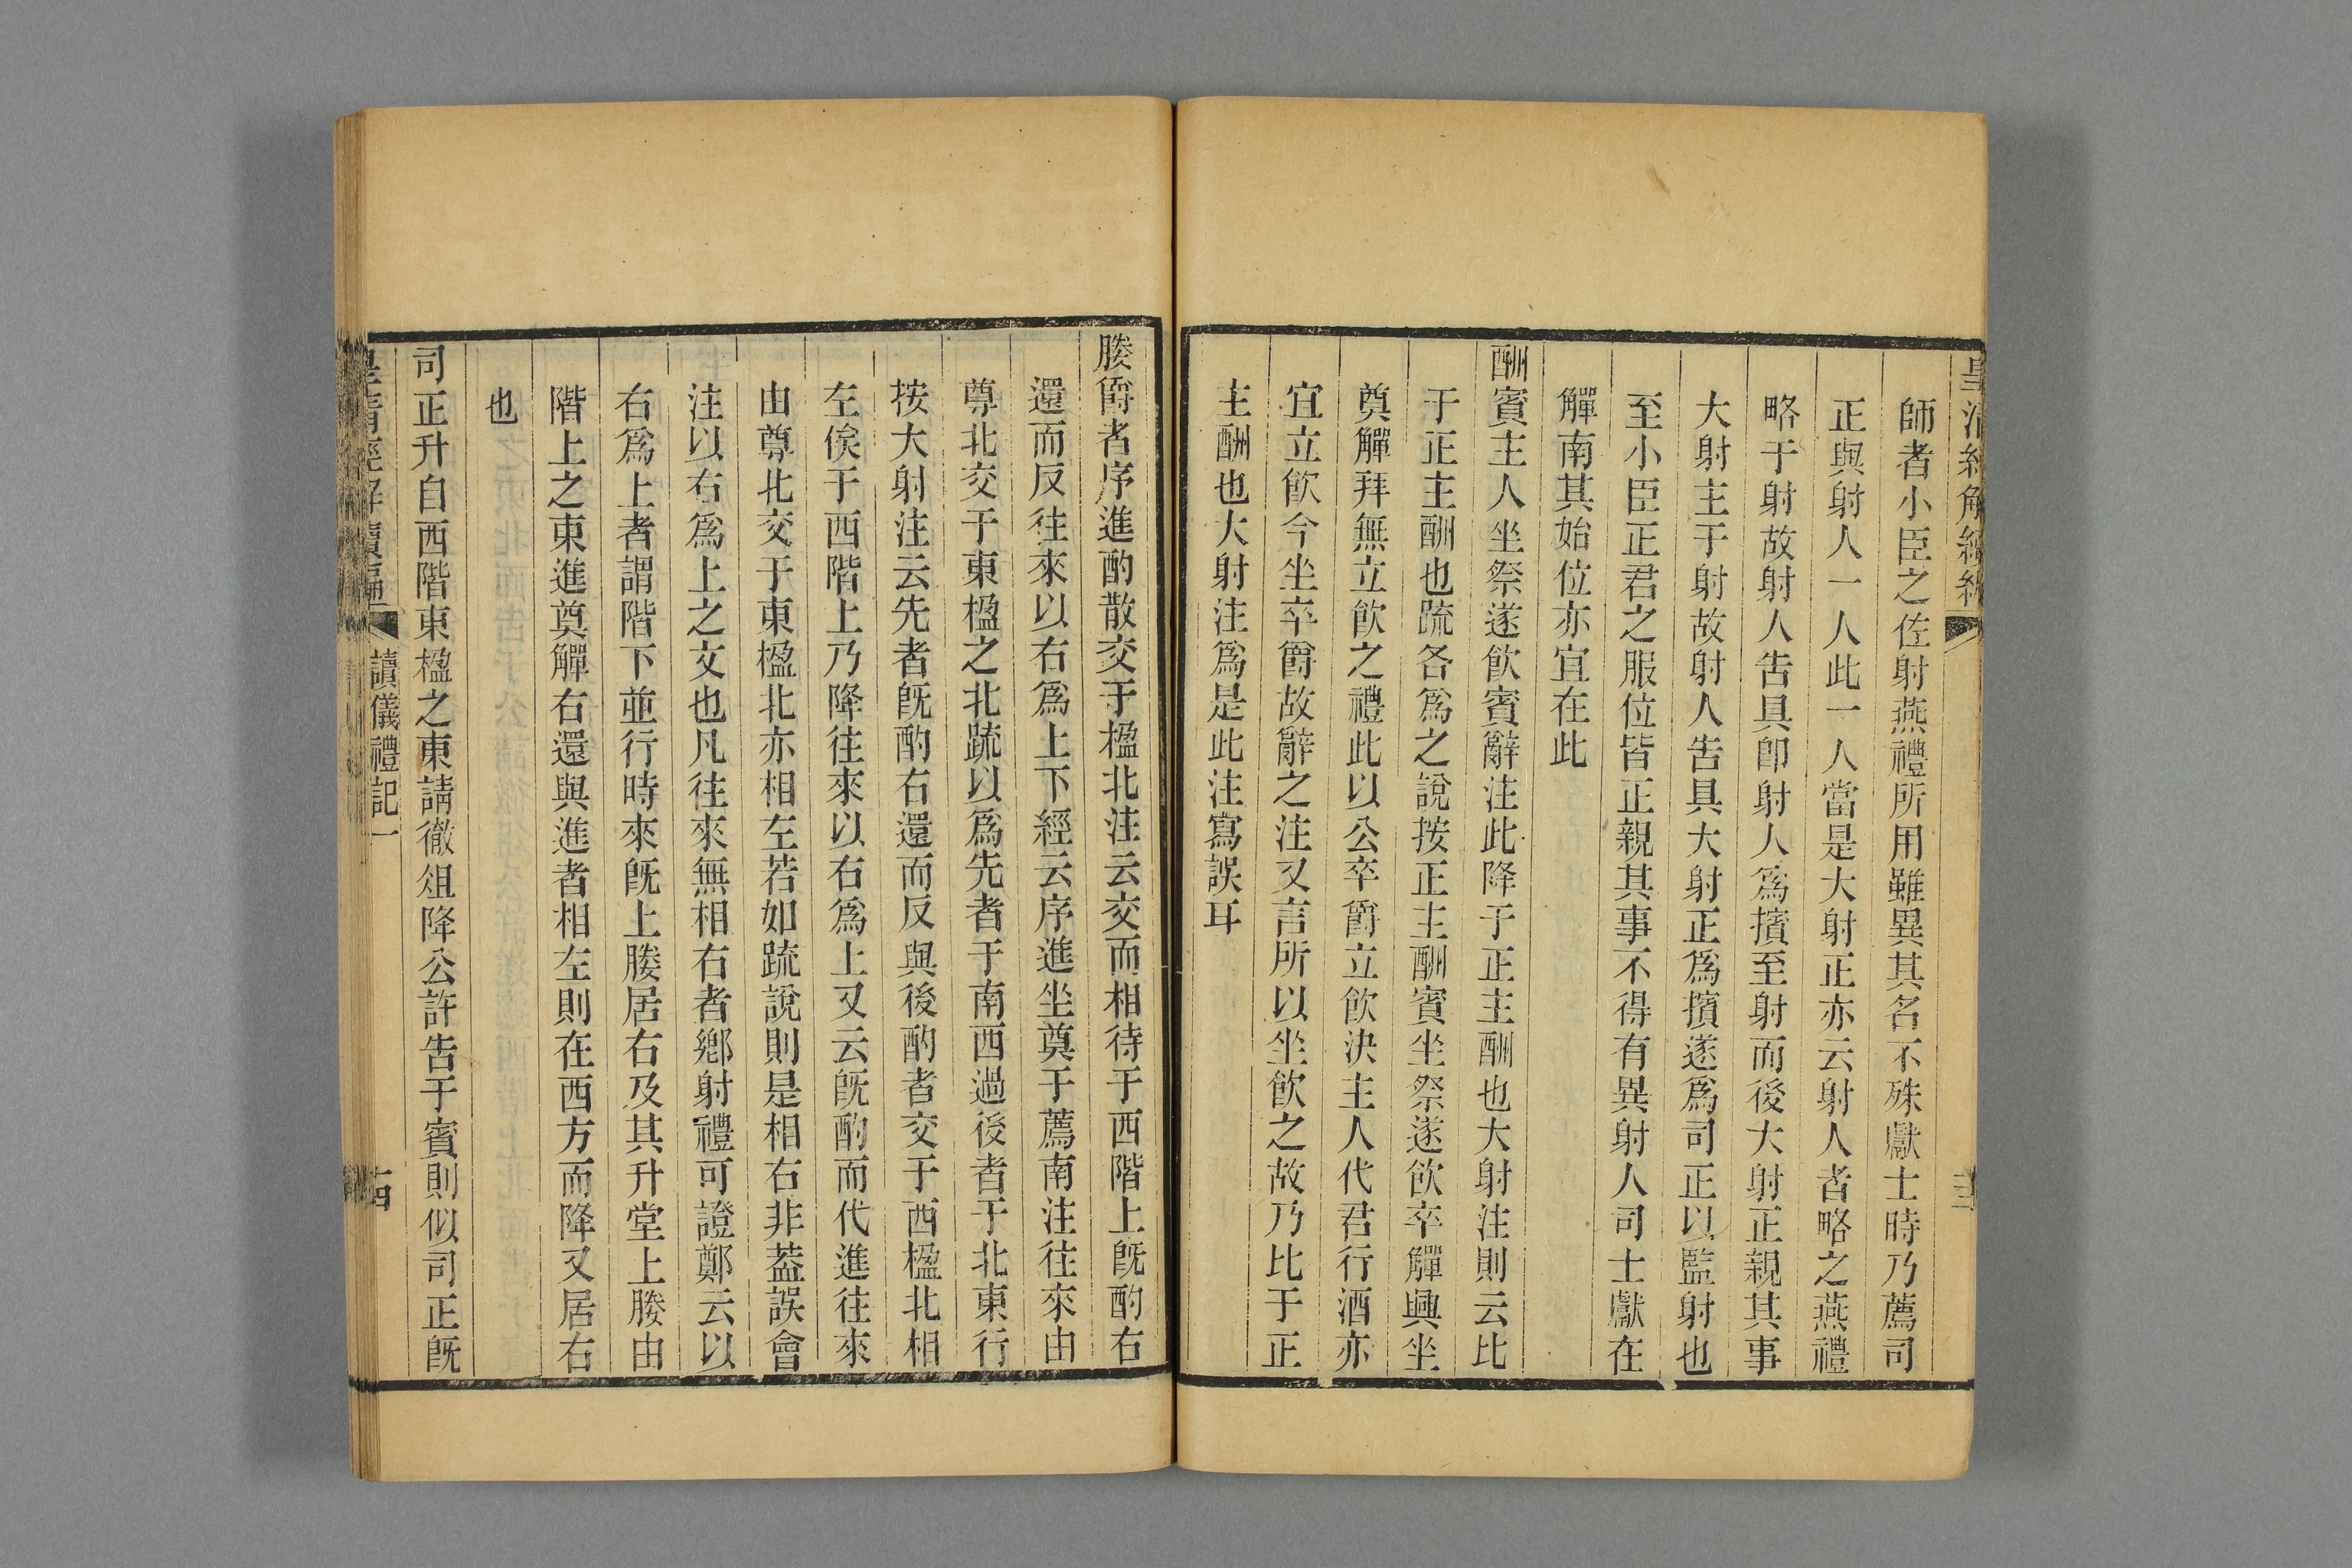 皇清經解續編
師者小臣之佐射燕禮所用雖異其名不殊獻士時乃薦司
正與射人一人此一人當是大射正亦云射人者略之燕禮
略于射故射人告具卽射人爲擯至射而後大射正親其事
大射主于射故射人告具大射正爲擯遂爲司正以監射也
至小臣正君之服位皆正親其事不得有異射人司士獻在
觶南其始位亦宜在此
酬賓主人坐祭遂飮賓辭注此降于正主酬也大射注則云比
于正主酬也疏各爲之說按正主酬賓坐祭遂飮卒觶興坐
奠觶拜無立飮之禮此以公卒爵立飮決主人代君行酒亦
宜立飮今坐卒爵故辭之注又言所以坐飮之故乃比于正
主酬也大射注爲是此注寫誤耳
媵爵者序進酌散交于楹北注云交而相待于西階上旣酌右
還而反往來以右爲上下經云序進坐奠于薦南注往來由
尊北交于東楹之北疏以爲先者于南西過後者于北東行
按大射注云先者旣酌右還而反與後酌者交于西楹北相
左俟于西階上乃降往來以右爲上又云旣酌而代進往來
由尊北交于東楹北亦相左若如疏說則是相右非葢誤會
注以右爲上之文也凡往來無相右者鄕射禮可證鄭云以
右爲上者謂階下竝行時來旣上媵居右及其升堂上媵由
階上之東進奠觶右還與進者相左則在西方而降又居右
也
司正升自西階東楹之東請徹俎降公許告于賓則似司正旣
皇淸經解續編 讀儀禮記一 十四